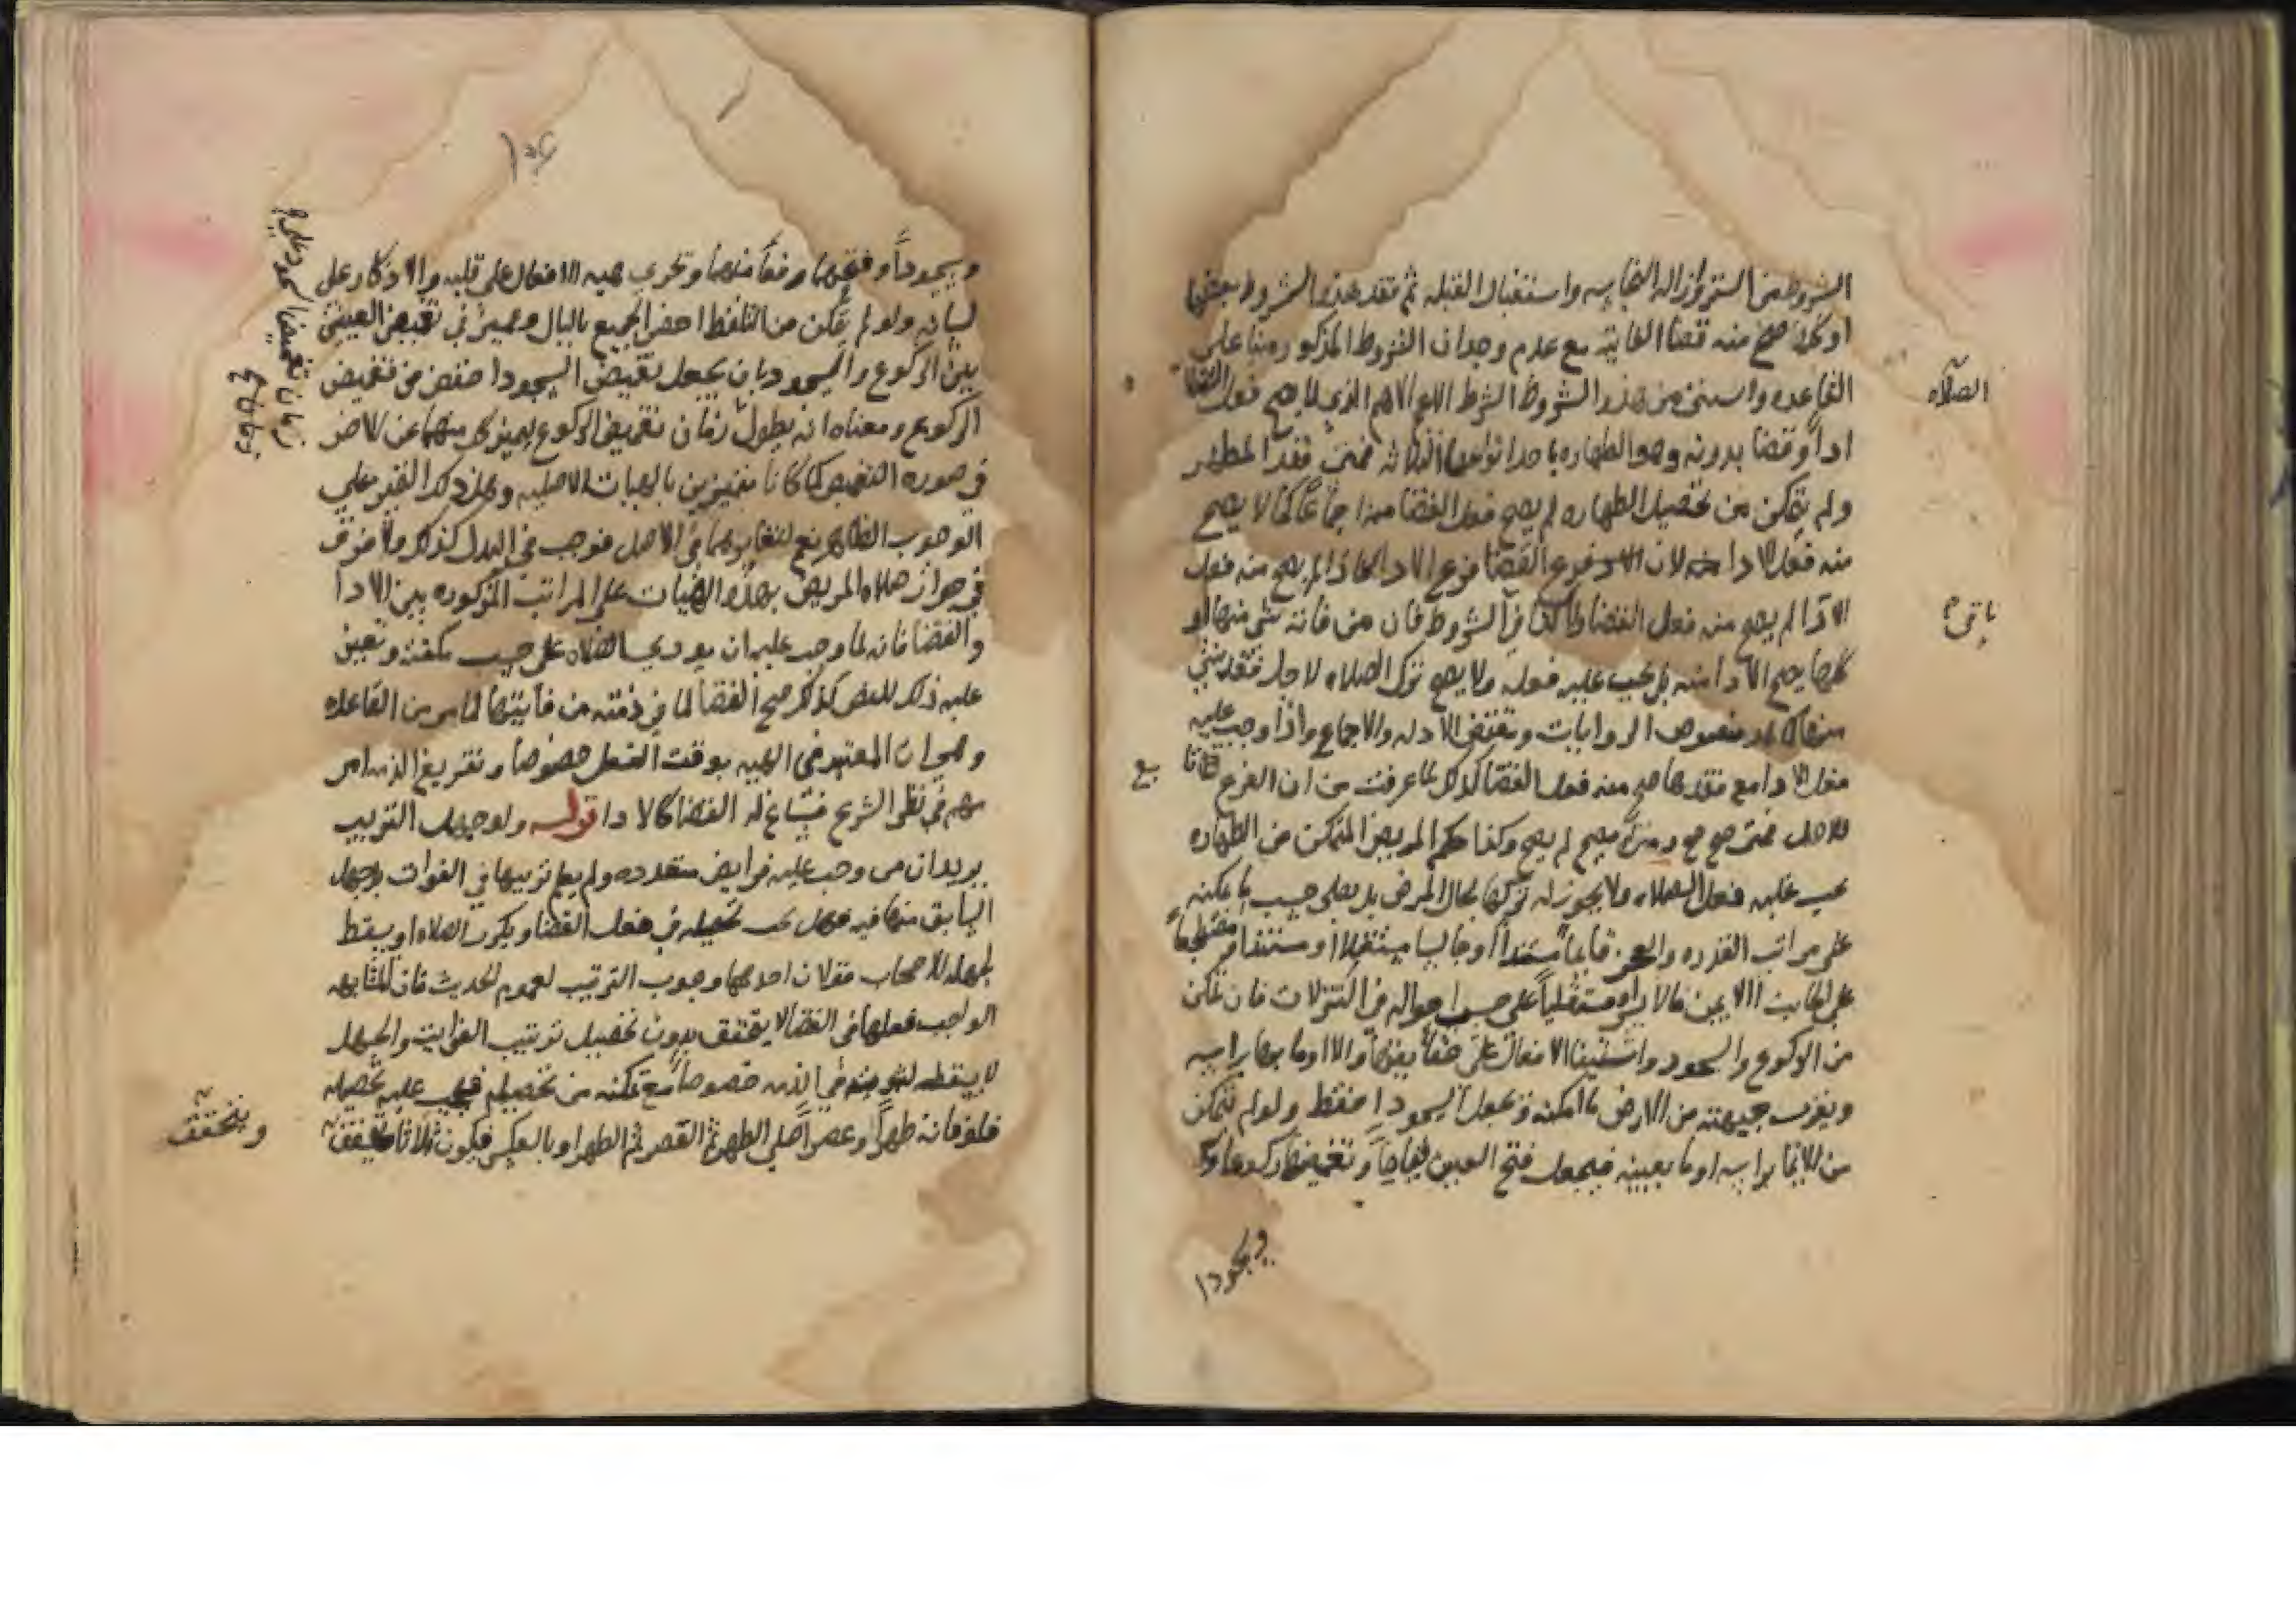 الشروط من الستر وازاله النجاسه واستقبال القبله ثم فقد هذه الشروط بعضها
او كلها صح منه قضا الفايته مع عدم وجدان الشروط المذكوره بنا على
القاعده واستثنى من هذه الشروط الشرط الاهم الذى لا يصح فعل الصلاه
ادا وقضا بدونه وهو الطهاره باحد انواعها الثلاثه فمتى فقد المطهر
ولم يتمكن من تحصيل الطهاره لم يصح فعل القضا منه اجماعا كما لا يصح
منه فعل الادا لان القضا فرع الادا فاذا لم يصح منه فعل
الادا لم يصح منه فعل القضا واما باقى الشروط فان من فاته شى منها او
كلها يصح الادا منه بل يجب عليه فعله ولا يصح ترك الصلاه لاجل فقد شى
منها كما هو منصوص الروايات ومقتضى الادله والاجماع واذا وجب عليه
فعل الادا مع فقدها صح منه فعل القضا كذلك لما عرفت من ان الفرع تابع
للاصل فمتى صح صح ومتى لم يصح لم يصح وكذا حكم المريض المتمكن من الطهاره
يجب عليه فعل الصلاه ولا يجوز له تركها بحال المرض بل يصلى حسب ما يمكنه
على مراتب القدره والعجز قايما مستندا او جالسا مستقلا او مستندا او مضطجعا
على الجانب الايمن فالايسر او مستلقيا على حسب احواله فى التنزلات فان تمكن
من الركوع والسجود واستيفا الافعال على حقايقها والا اوما بها براسه
ويقرب جبهته من الارض ما امكنه فى السجود احفظ ولو لم يتمكن
من الايما براسه اوما بعينيه فيجعل فتح العين قياما وتغميضها ركوعا
وسجودا
وسجودا وفتحهما رفعا منهما وتجرى هيه الافعال على قلبه والاذكار على
لسانه ولو لم يتمكن من التلفظ احضر الجميع بالبال وتميز فى تغميض العينين
بين الركوع والسجود بان يجعل تغميض السجود اخفض من تغميض
الركوع ومعناه انه يطول زمان تغميض السجود على زمان تغميض الركوع ليميز كل منهما عن الاخر
فى صوره التغميض كما كانا متميزين بالهيات الاصليه وهل ذلك التغيير على
الوجوب الظاهر نعم لتغايرهما فى الاصل فوجب فى البدل كذلك ولا فرق
فى جواز صلاه المريض بهذه الهيات على المراتب المذكوره بين الادا
والقضا فانه لما وجب عليه ان يودى الصلاه على حسب مكنته وتعين
عليه ذلك كذلك صح القضا لما فى ذمته من فايتها لما مر من القاعده
وهى ان المعتبر فى الهيه بوقت الفعل خصوصا وتفريغ الذمه امر
مهم فى نظر الشرع فساغ له القضا كالادا قوله ولو جهل الترتيب
يريد ان من وجب عليه فرايض متعدده ولم يعلم ترتيبها فى الفوات وجهل
السابق منها فهل يجب تحصيله فى فعل القضا ويكرر الصلاه او يسقط
لجهله للاصحاب قولان احدهما وجوب الترتيب لعموم الحديث فان المتابعه
الواجب فعلها فى القضا لا يتحقق بدون تحصيل ترتيب الفوايت والجهل
لا يسقطه لثبوته فى الذمه خصوصا مع تمكنه من تحصيله فيجب عليه تحصيله
فلو فاته ظهرا وعصرا صلى الظهر ثم العصر ثم الظهر او بالعكس فيكون ثلاثا
ويتحقق